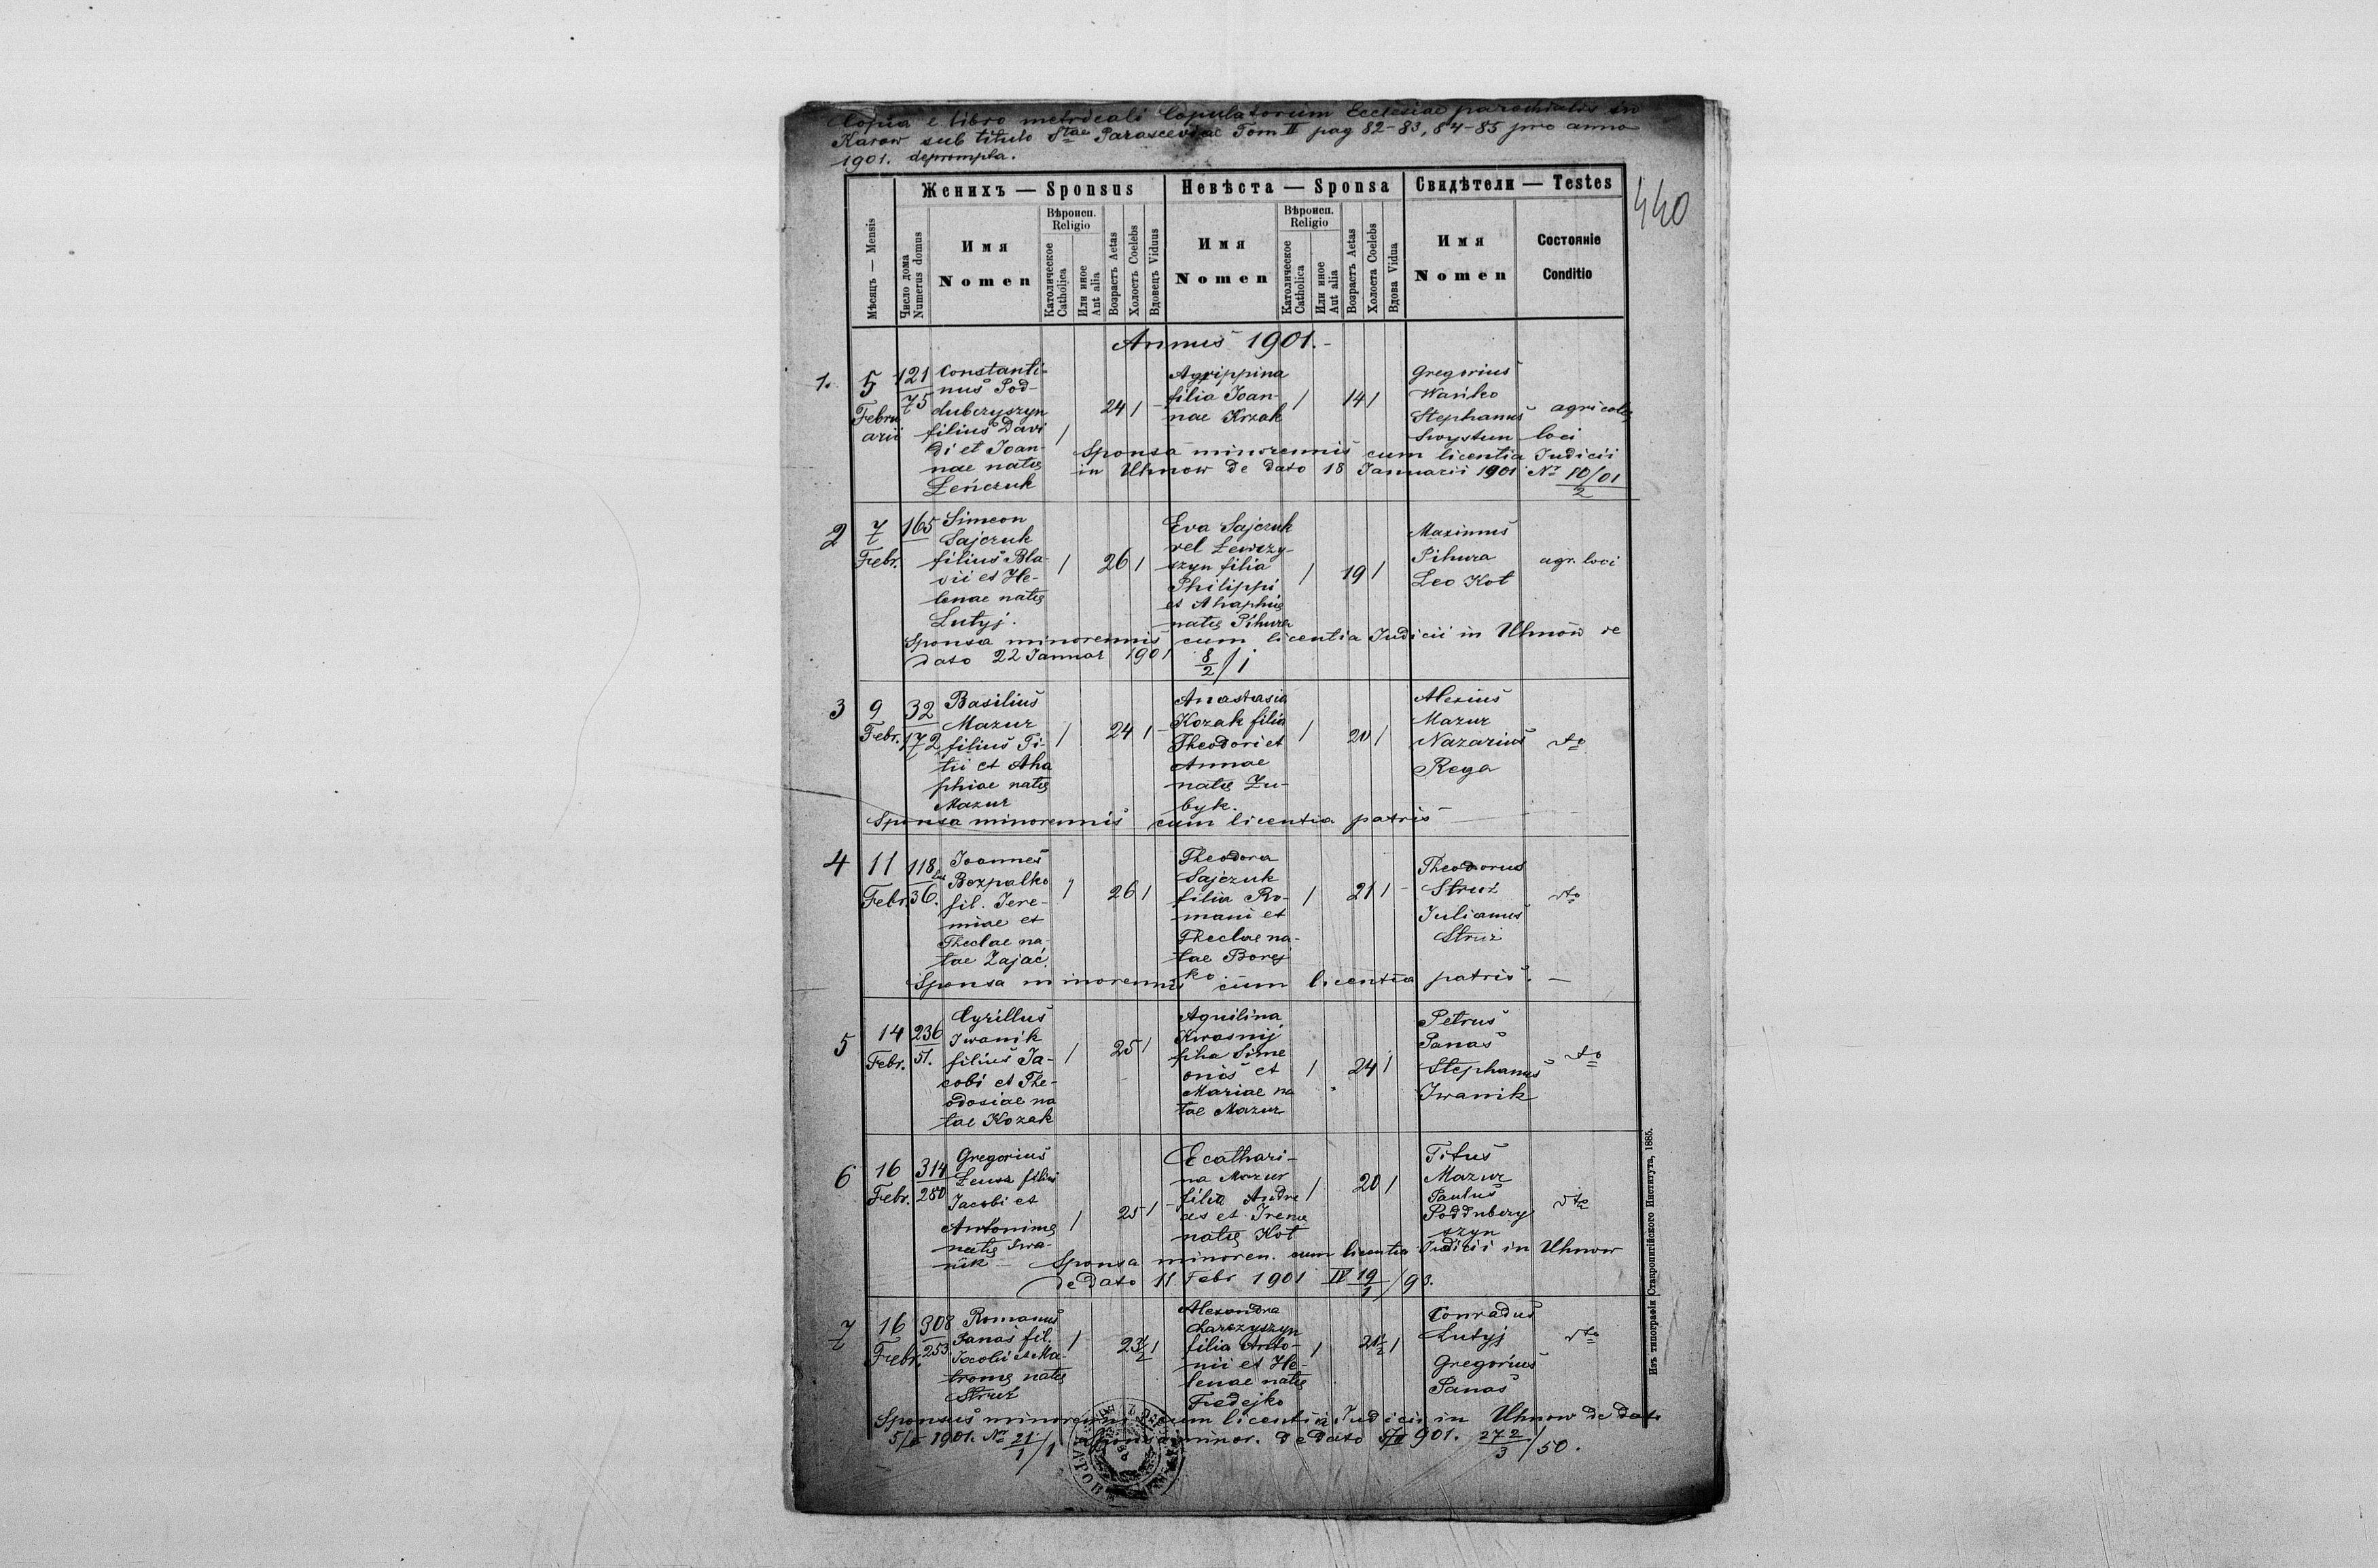 Copia e libro metricali Copulatorum Ecclesiae parochialis in
Karow sub titulo Stae Parascevae Tom II pag 82-83, 84-85 pro anno
1901. deprompta.
440
Женихъ — Sponsus
Невѣста — Sponsa
Свидѣтели — Testes
Мѣсяцъ — Mensis
Число дома
Numerus domus
Имя
Nomen
Вѣроисп.
Religio
Католическое
Catholica
Или иное
Aut alia
Возрастъ Aetas
Холостъ Coelebs
Вдовецъ Viduus
Имя
Nomen
Вѣроисп.
Religio
Католическое
Catholica
Или иное
Aut alia
Возрастъ Aetas
Холоста Coelebs
Вдова Vidua
Имя
Nomen
Состояніе
Conditio
Annus 1901.-
1.
5
Febru
arii
121
75
Constanti-
nus Pod-
dubczyszyn
filius Davi
di et Joan-
nae natę
Leńczuk
/ 24 /
Agrippina
filia Joan-
nae Krzak
/ 14 /
Gregorius
Wańko
Stephanus
Swystun
agricolę
loci
Sponsa minorennis cum licentia Judicii
in Uhnow de dato 18 Januarii 1901 Nr 10/01
2
2
7
Febr.
165
Simeon
Sajczuk
filius Bla-
vii et He-
lenae natę
Lutyj.
/ 26 /
Eva Sajczuk
vel Lewczy-
szyn filia
Philippi
et Ahaphię
natę Pihura
/ 19 /
Maximus
Pihura
Leo Kot
agr. loci
Sponsa minorennis cum licentia Judicii in Uhnów de
dato 22 Januar 1901 8/2 / 1
3
9
Febr.
32
172
Basilius
Mazur
filius Ti-
tii et Aha
phiae natę
Mazur
/ 24 /
Anastasia
Kozak filia
Theodori et
Annae
natę Zu-
byk.
/ 20 /
Alexius
Mazur
Nazarius
Rega
dto
Sponsa minorennis cum licentia patris
4
11
Febr.
118
36.
Joannes
Bezpalko
fil. Jere-
miae et
Theclae na-
tae Zając.
/ 26 /
Theodora
Sajczuk
filia Ro-
mani et
Theclae na-
tae Borej
ko.
/ 21 /
Theodorus
Struż
Julianus
Struż
dto
Sponsa minorennis cum licentia patris. —
5
14
Febr.
236
51.
Cyrillus
Iwanik
filius Ja-
cobi et The-
odosiae na
tae Kozak
/ 25 /
Aquilina
Kwasnij
filia Sime
onis et
Mariae na
tae Mazur
/ 24 /
Petrus
Panas
Stephanus
Iwanik
dto
6
16
Febr.
314
280
Gregorius
filius
Jacobi et
Antoninę
natę Iwa-
nik
/ 25 /
Ecathari-
na Mazur
filia Andre
as et Irenę
natę Kot
/ 20 /
Titus
Mazur
Paulus
Poddubczy
szyn
dto
Sponsa minoren. cum licentia Judicii in Uhnow
de dato 11 Febr 1901 IV 19/1 / 93.
7
16
Febr.
308
253
Romanus
Panas fil.
Jacobi et Ma-
tronę natę
Struż
/ 23 1/2 /
Alexandra
filia Anto-
nii et He-
lenae natę
Fedejko
/ 21 1/2 /
Conradus
Lutyj
Gregorius
Panas
dto
Sponsus minorennis cum licentia Judicii in Uhnow de dato
1901. Nr 21/1 / 1 Sponsa minor. de dato 901. 272/3 / 50.
Изъ типографіи Ставропигійского Института, 1885.